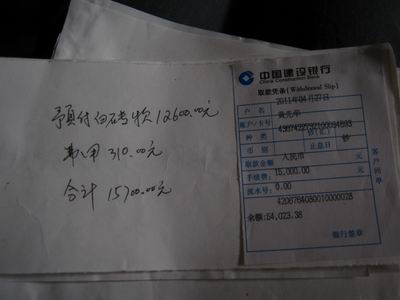 预付白砖款12600.00元
用 310.00元
合计 15700.00元
中国建设银行
China Construction Bank
取款凭条(Withdrawal Slip)
2011年04月27日
户 名
账户/卡号
种 类 钞(汇) 钞
币 别 止息日
取款金额 人民币 元
手续费: 15,000.00 元
流水号: 0.00
4206764080010000028
余额:54,023.38
银行签章
客户回单